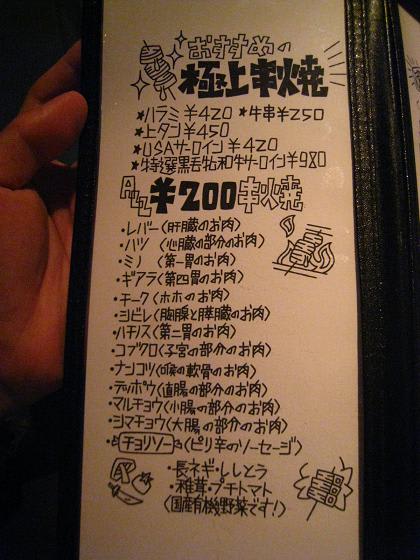 おすすめの
極上串焼
★ハラミ¥420 ★牛串¥250
★上タン¥450
★USAサーロイン¥420
★特選黒毛和牛サーロイン¥980
ALL¥200串焼
・レバー(肝臓のお肉)
・ハツ(心臓の部分のお肉)
・ミノ(第一胃のお肉)
・ギアラ(第四胃のお肉)
・チーク(ホホのお肉)
・シビレ(胸腺と膵臓のお肉)
・ハチノス(第二胃のお肉)
・コブクロ(子宮の部分のお肉)
・ナンコツ(喉の軟骨のお肉)
・テッポウ(直腸の部分のお肉)
・マルチョウ(小腸の部分のお肉)
・シマチョウ(大腸の部分のお肉)
・チョリソー(ピリ辛のソーセージ)
・長ネギ・ししとう
・椎茸・プチトマト
(国産有機野菜です!)